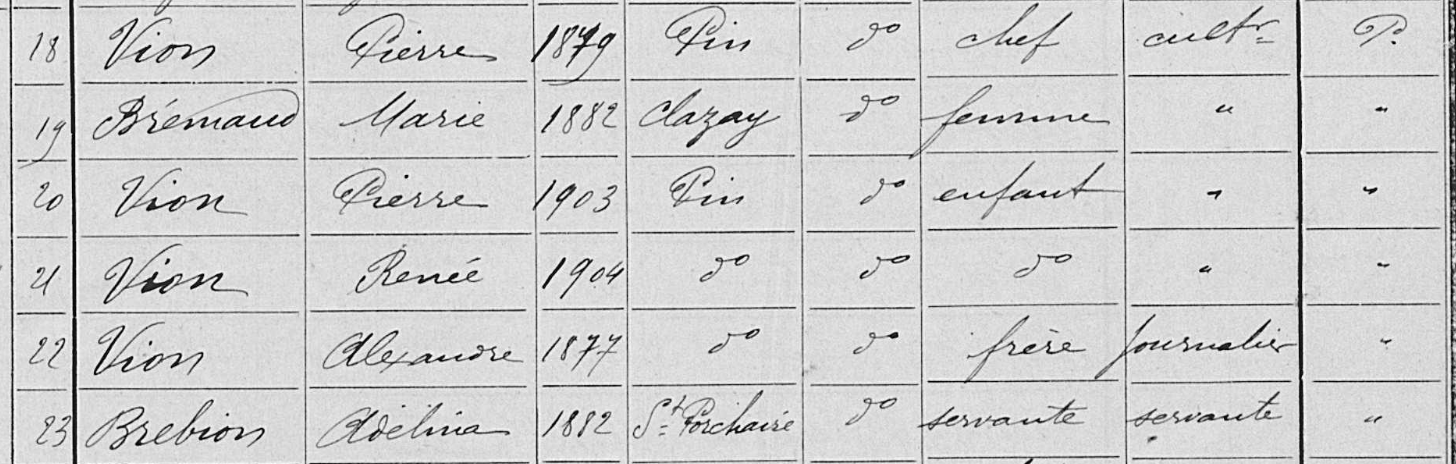 18 Vion Pierre 1879 Pin do chef cultr P.
19 Brémaud Marie 1882 Clazay do femme " "
20 Vion Pierre 1903 Pin do enfant " "
21 Vion Renée 1904 do do do " "
22 Vion Alexandre 1877 do do frère journalier "
23 Brebion Adélina 1882 St Porchaire do servante servante "